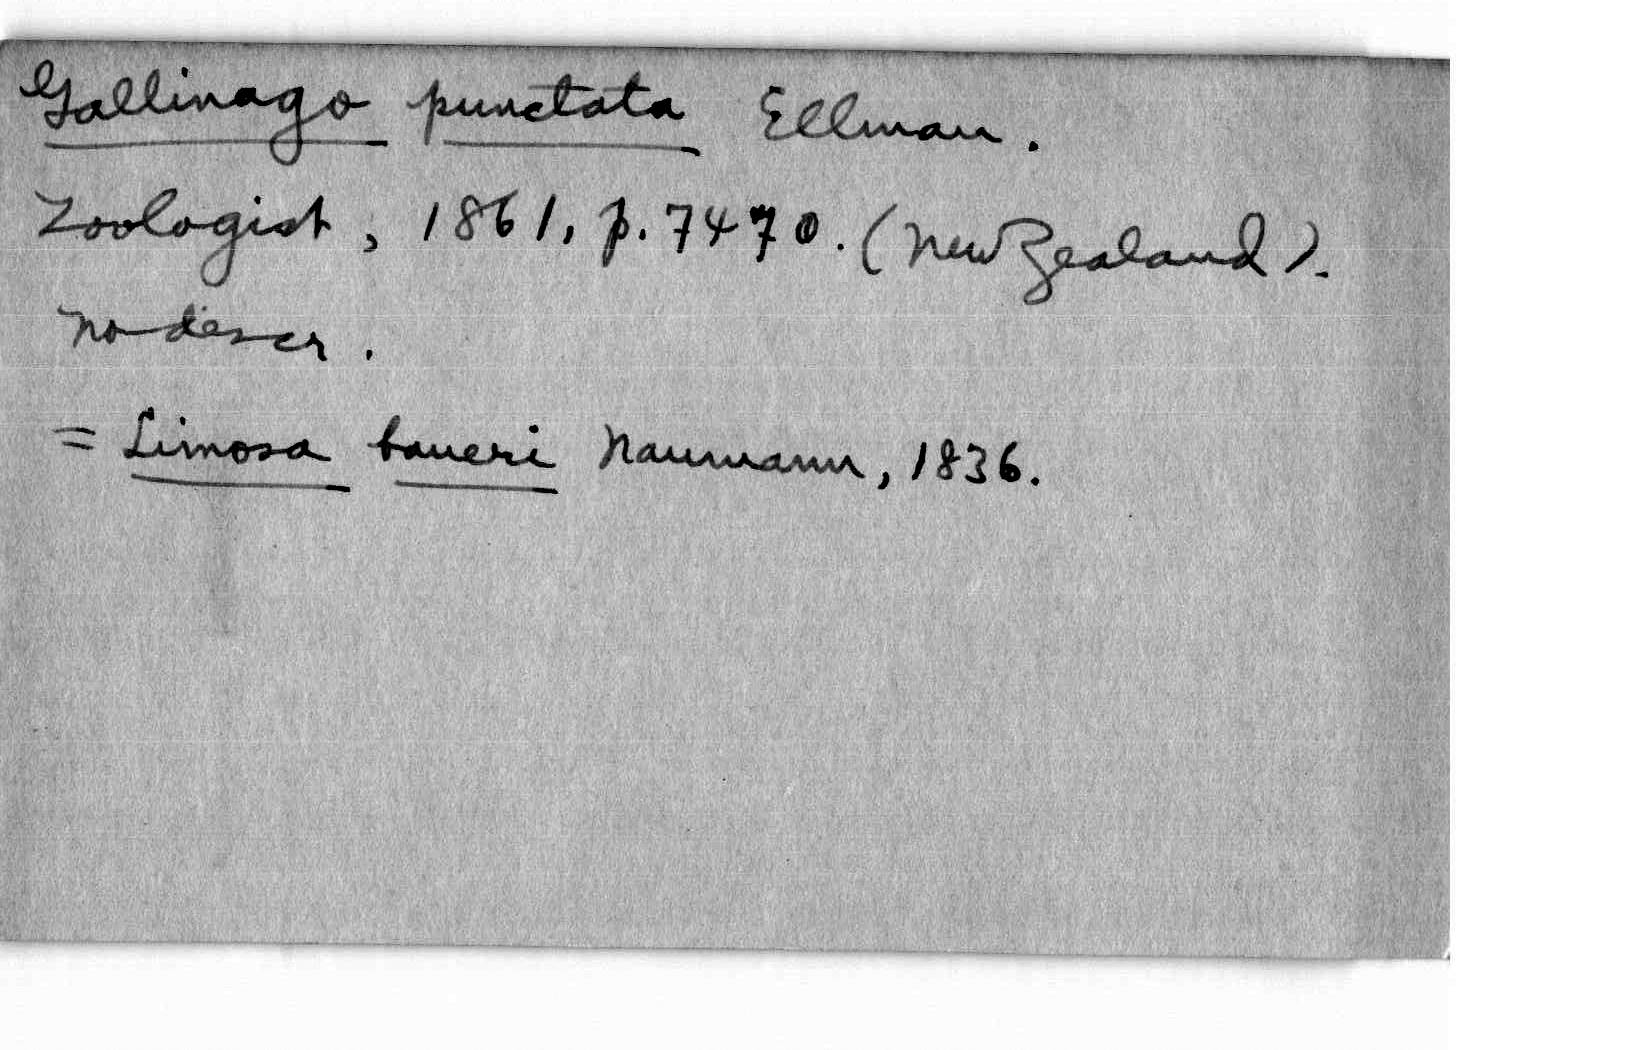 Gallinago punctata Ellman.
Zoologist, 1861, p. 7470. (New Zealand).
No descr.
= Limosa baueri Naumann, 1836.